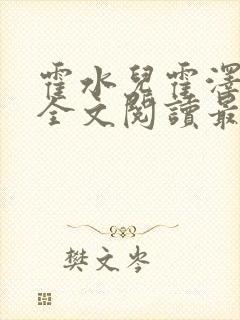 霍水兒霍澤
全文閱讀最
樊文岑